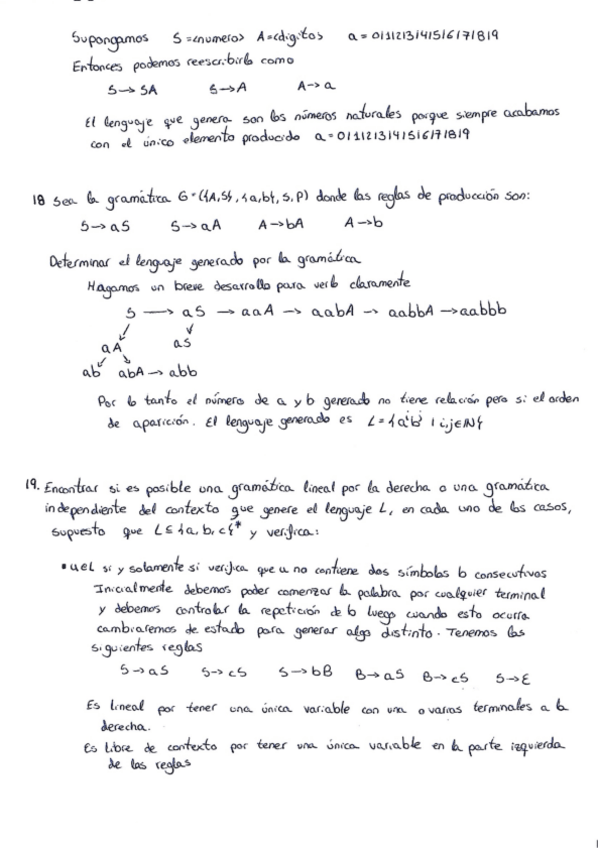 Supongamos S=<numero> A=<digito> a=0|1|2|3|4|5|6|7|8|9
Entonces podemos reescribirlo como
S→SA S→A A→a
El lenguaje que genera son los números naturales porque siempre acabamos
con el único elemento producido a=0|1|2|3|4|5|6|7|8|9
18 Sea la gramática G=({A,S}, {a,b}, S, P) donde las reglas de producción son:
S→aS S→aA A→bA A→b
Determinar el lenguaje generado por la gramática
Hagamos un breve desarrollo para verlo claramente
S → aS → aaA → aabA → aabbA → aabbb
aA aS
ab abA → abb
Por lo tanto el número de a y b generado no tiene relación pero si el orden
de aparición. El lenguaje generado es L={aⁱbʲ | i,j∈N}
19. Encontrar si es posible una gramática lineal por la derecha o una gramática
independiente del contexto que genere el lenguaje L, en cada uno de los casos,
supuesto que L⊆{a,b,c}* y verifica:
• u∈L si y solamente si verifica que u no contiene dos símbolos b consecutivos
Inicialmente debemos poder comenzar la palabra por cualquier terminal
y debemos controlar la repetición de b luego cuando esto ocurra
cambiaremos de estado para generar algo distinto. Tenemos las
siguientes reglas
S→aS S→cS S→bB B→aS B→cS S→ε
Es lineal por tener una única variable con una o varias terminales a la
derecha.
Es libre de contexto por tener una única variable en la parte izquierda
de las reglas